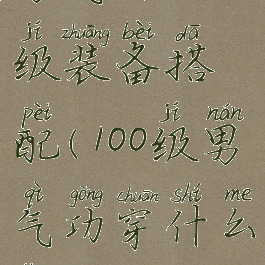 jí zhuāng bèi dā
级装备搭
pèi jí nán
配(100级男
qì gōng chuān shí me
气功穿什么